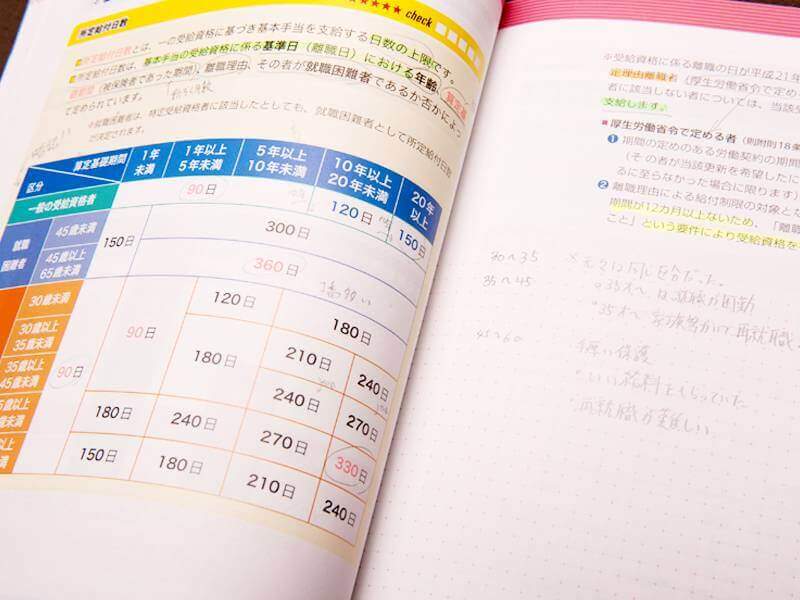 ★★★★★ check
所定給付日数
■所定給付日数とは、一の受給資格に基づき基本手当を支給する日数の上限です。
■所定給付日数は、基本手当の受給資格に係る基準日(離職日)における年齢、算定基
礎期間(被保険者であった期間)、離職理由、その者が就職困難者であるか否かによっ
て定められています。
※就職困難者は、特定受給資格者に該当したとしても、就職困難者として所定給付日数
が決定されます。
算定基礎期間
区分
1年
未満
1年以上
5年未満
5年以上
10年未満
10年以上
20年未満
20年
以上
一般の受給資格者
90日
120日
150日
就職
困難者
45歳未満
150日
300日
45歳以上
65歳未満
360日
30歳未満
90日
90日
120日
180日
30歳以上
35歳未満
180日
210日
240日
35歳以上
45歳未満
240日
270日
5歳以上
歳未満
180日
240日
270日
330日
以上
満
150日
180日
210日
240日
※受給資格に係る離職の日が平成21年
定理由離職者(厚生労働省令で定め
者に該当しない者については、当該
支給します。
■厚生労働省令で定める者(則附則18条
❶ 期間の定めのある労働契約の期間
(その者が当該更新を希望したに
るに至らなかった場合に限ります)
❷ 離職理由による給付制限の対象とな
期間が12カ月以上ないため、「離職
こと」という要件により受給資格を
30〜35
35〜45
45〜60
・いい給料をもらっていた
・再就職が難しい